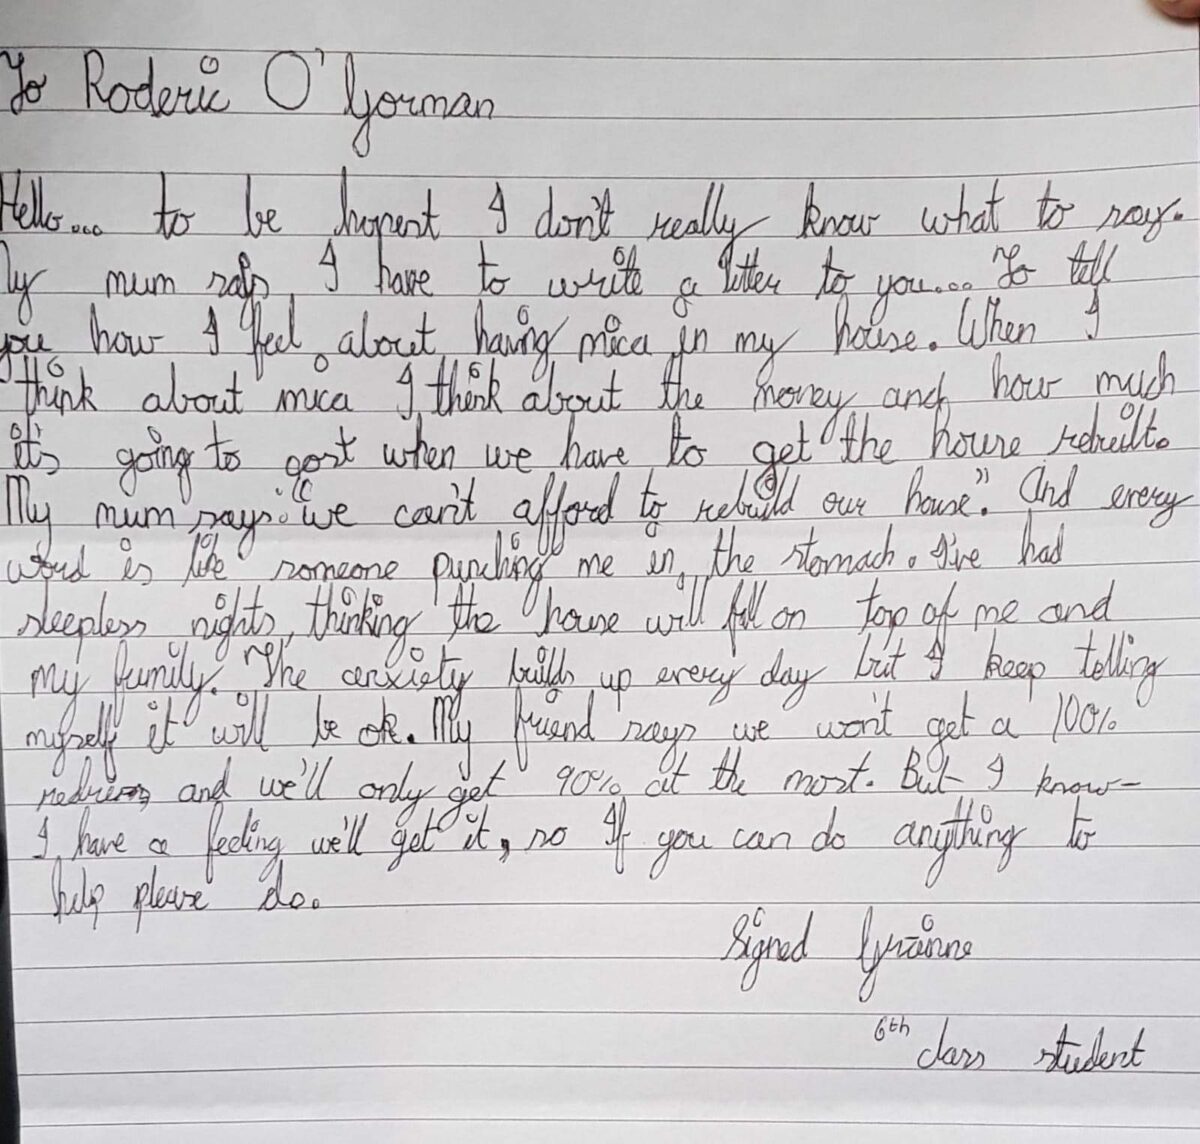 To Roderic O'Gorman
Hello... to be honest I don't really know what to say.
My mum says I have to write a letter to you... To tell
you how I feel about having mica in my house. When I
think about mica I think about the money and how much
it's going to cost when we have to get the house rebuilt.
My mum says: "We can't afford to rebuild our house". And every
word is like someone punching me in the stomach. I've had
sleepless nights, thinking the house will fall on top of me and
my family. The anxiety builds up every day but I keep telling
myself it will be ok. My friend says we won't get a 100%
redress and we'll only get 90% at the most. But I know-
I have a feeling we'll get it, so If you can do anything to
help please do.
Signed Gráinne
6th class student